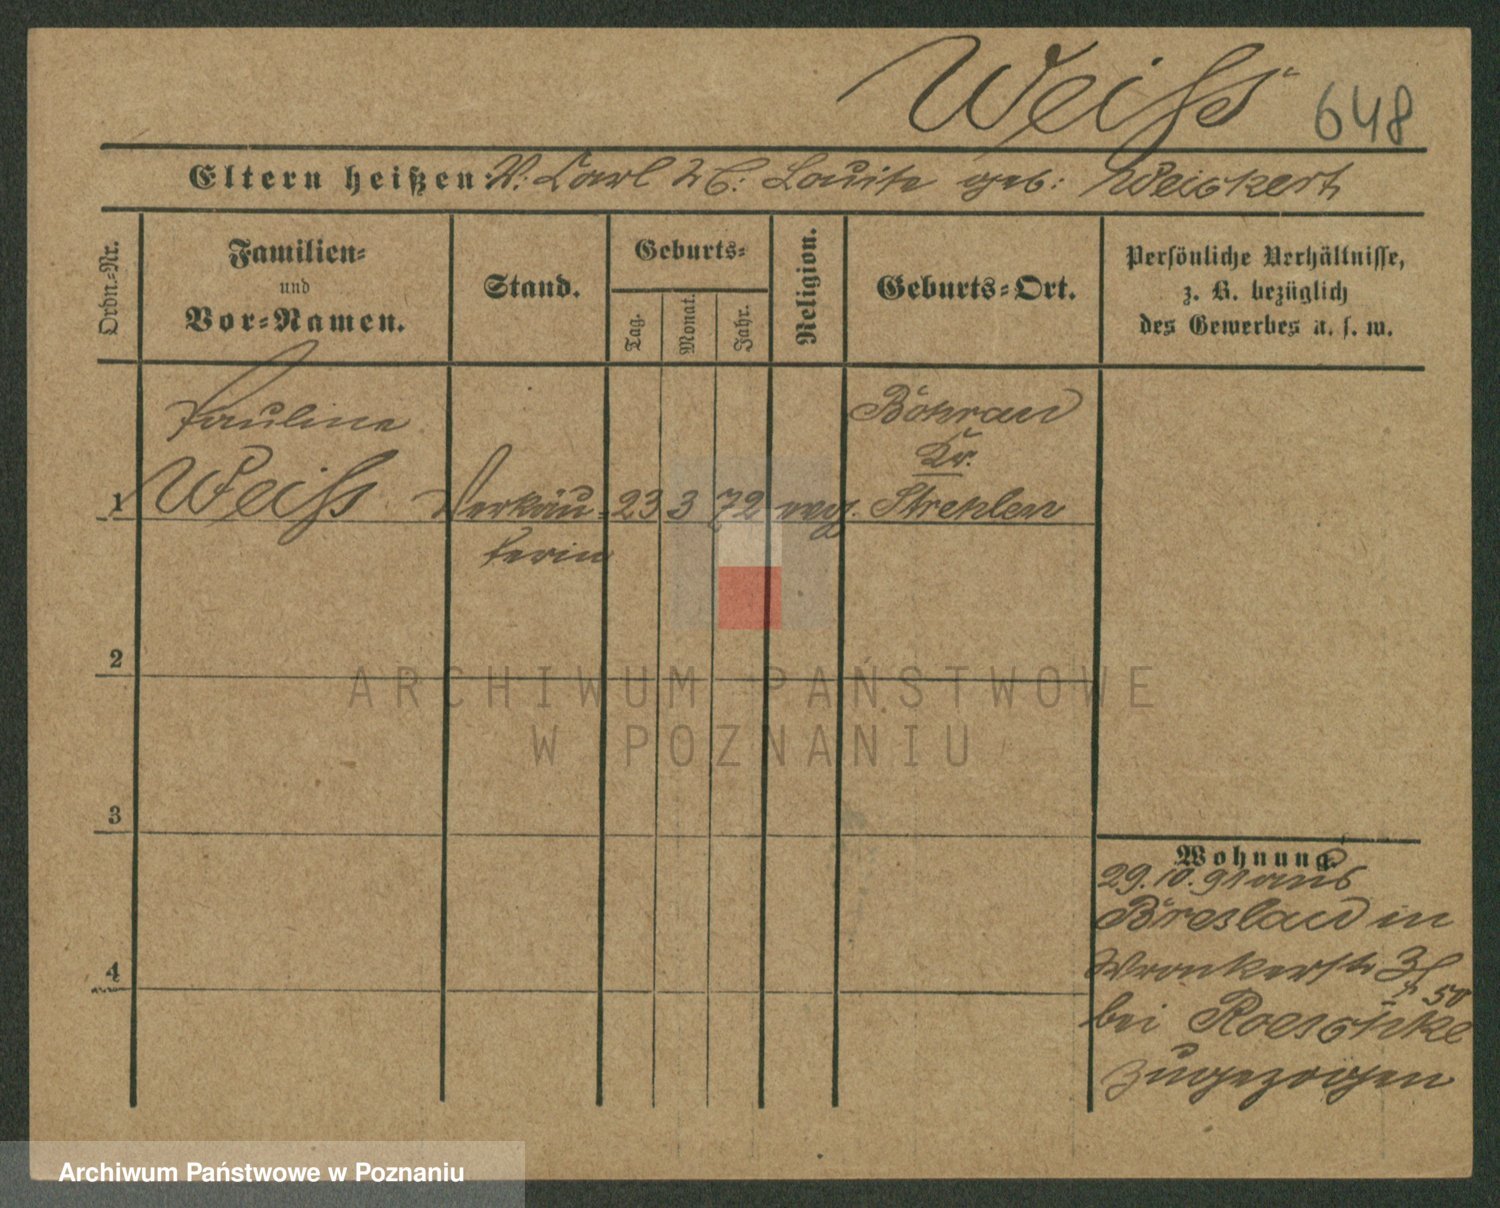 Weiss 648
Eltern heißen: V. Carl M: Louise geb: Weickert
Ordn.-Nr.
Familien-
und
Vor-Namen.
Stand.
Geburts-
Tag.
Monat.
Jahr.
Religion.
Geburts-Ort.
Persönliche Verhältnisse,
z. B. bezüglich
des Gewerbes u. s. w.
Pauline
Böhrau
Kr.
1 Weiss Verkäu- 23 3 72 evg. Strehlen
ferin
2
3
4
Wohnung.
29.10.91 aus
Breslau in
Wronkerstr
bei Roeschke
zugezogen
ARCHIWUM PAŃSTWOWE
W POZNANIU
Archiwum Państwowe w Poznaniu